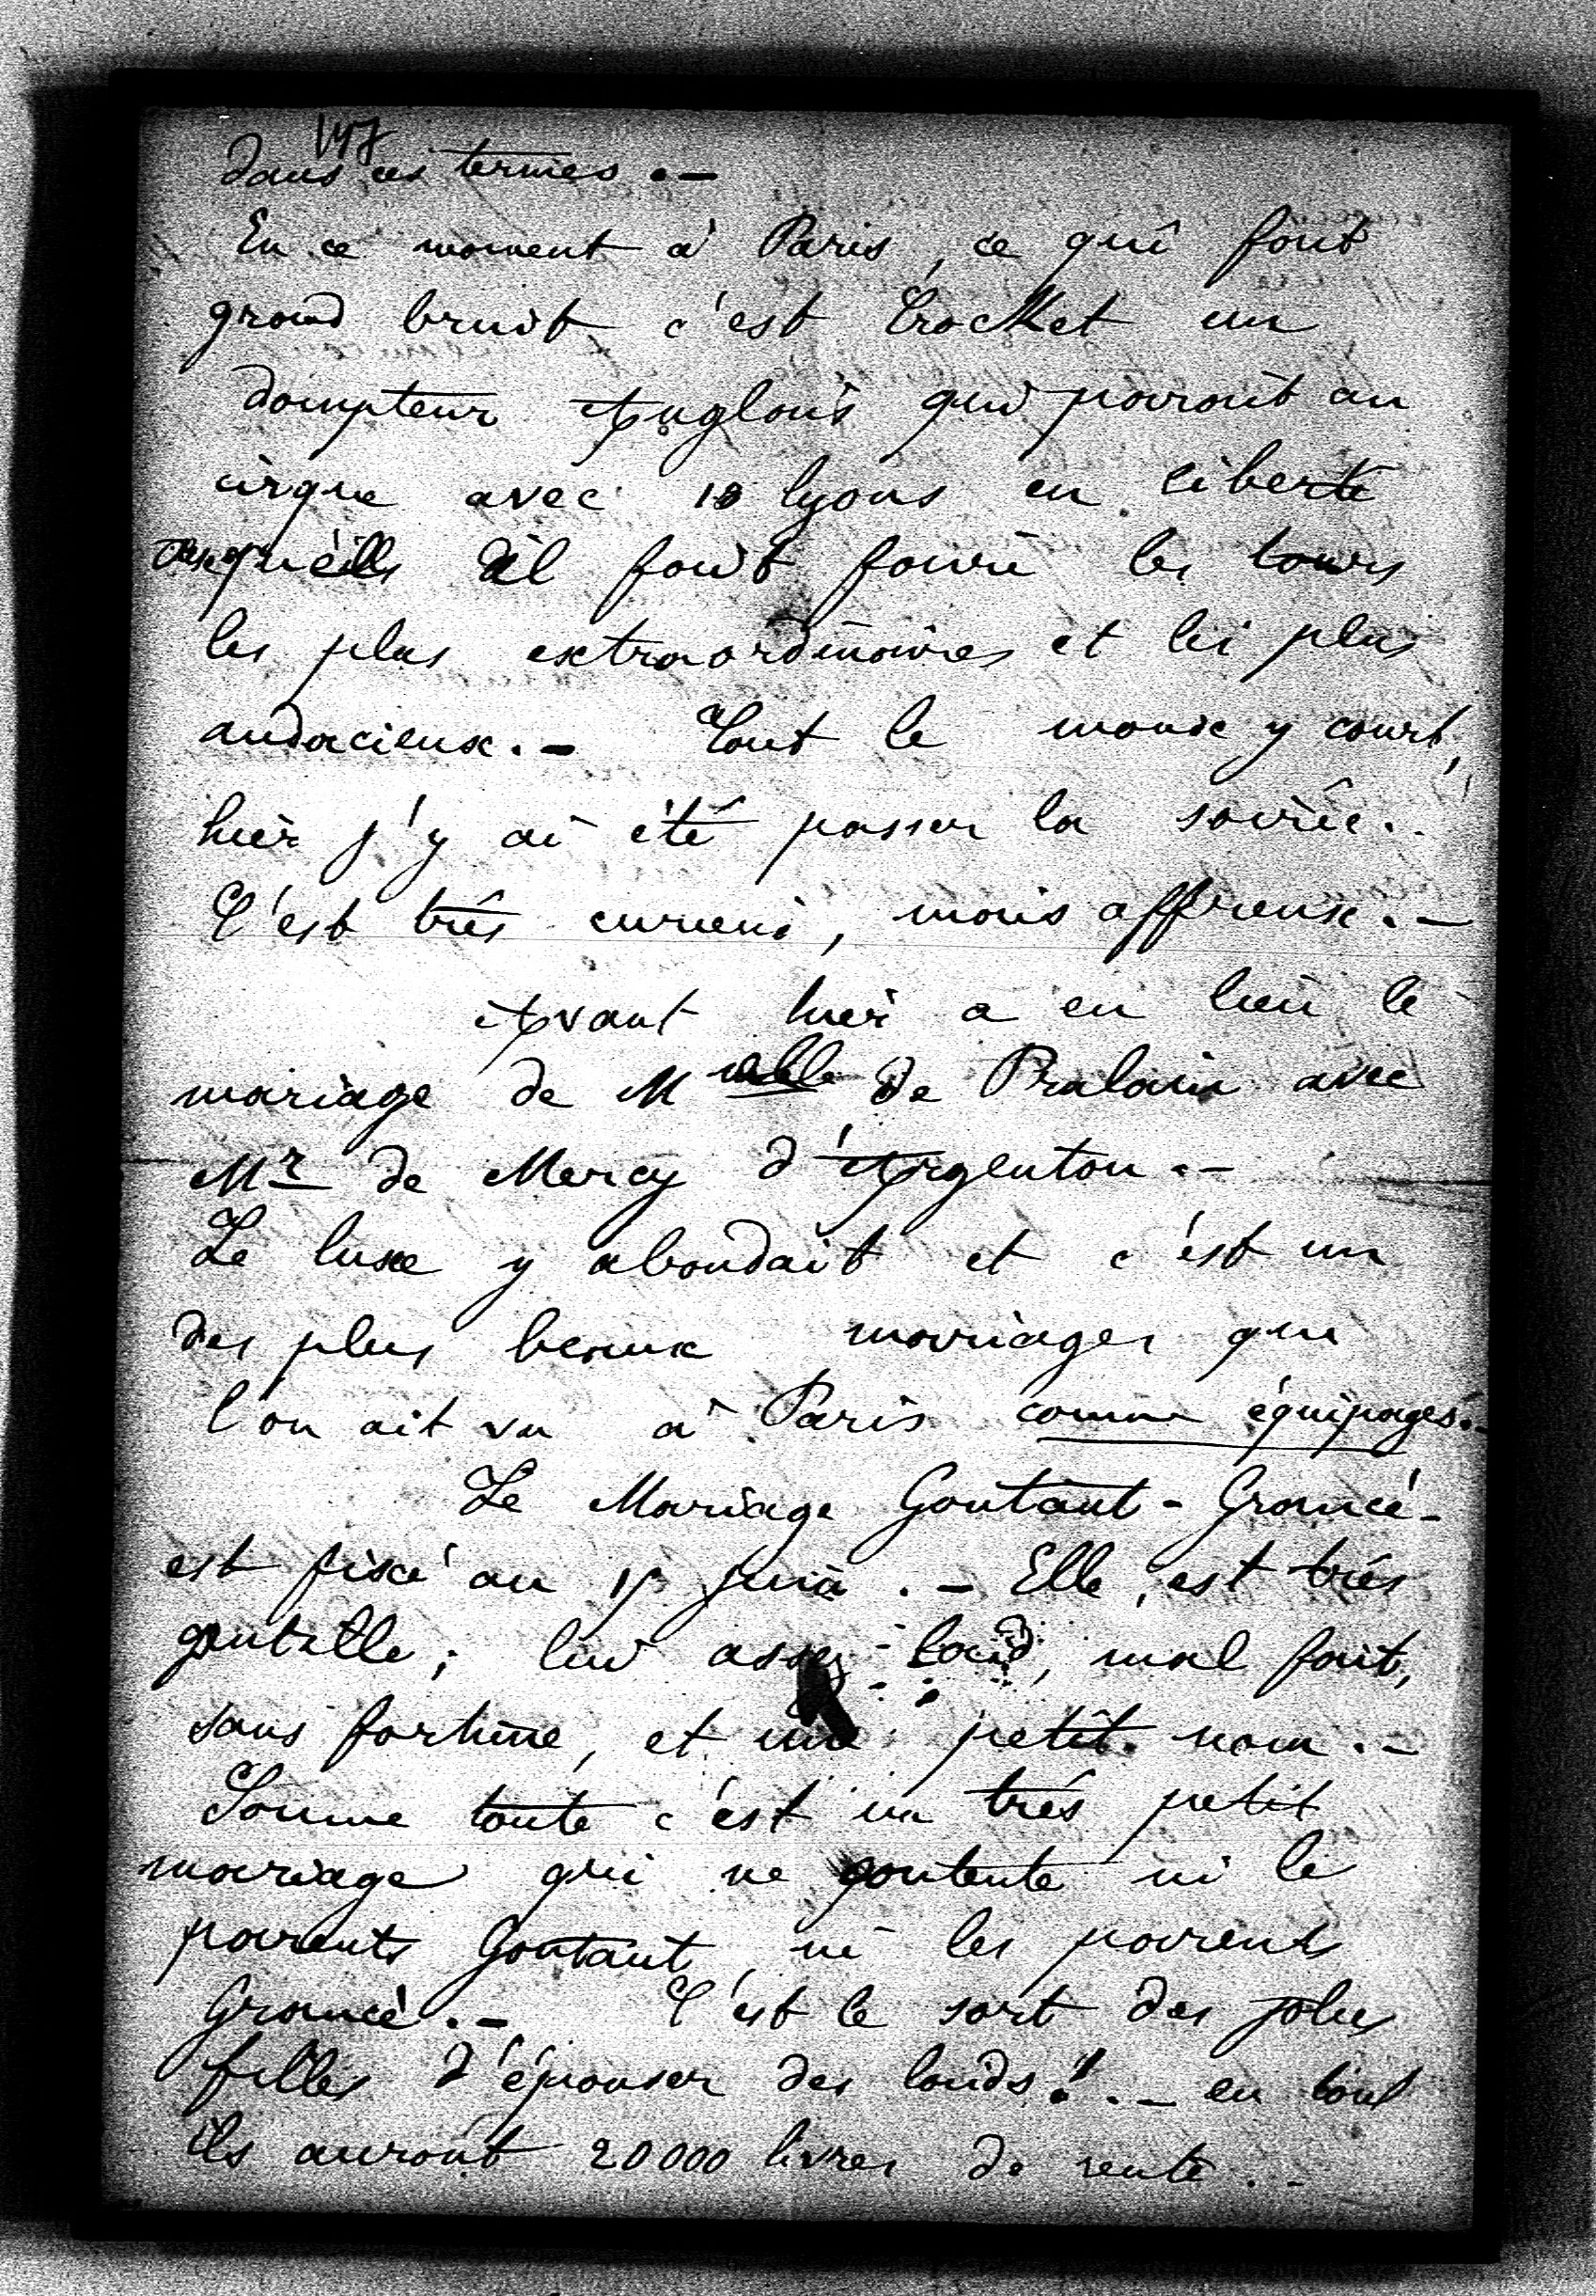 147
dans ces termes . –
En ce moment à Paris, ce qui fait
grand bruit c'est Crockett un
dompteur Anglais qui parait au
cirque avec 18 lyons en liberté
auxquels il fait faire les tours
les plus extraordinaires et les plus
audacieux. – Tout le monde y court,
hier j'y ai été passer la soirée.
C'est très curieux, mais affreux. –
Avant hier a eu lieu le
mariage de Melle de Pralain avec
Mr de Mercy d'Argenton. –
Le luxe y abondait et c'est un
des plus beaux mariages que
l'on ait vu à Paris comme équipages. –
Le Mariage Gontaut - Grancé -
est fixé au juin . – Elle est très
gentille ; lui assez laid, mal fait,
sans fortune, et un petit nom. –
Somme toute c'est un très petit
mariage qui ne contente ni le
parents Gontaut, ni les parents
Grancè. – C'est le sort des jolies
filles d'épouser des laids ! . – en tout
ils auront 20000 livres de rente . –